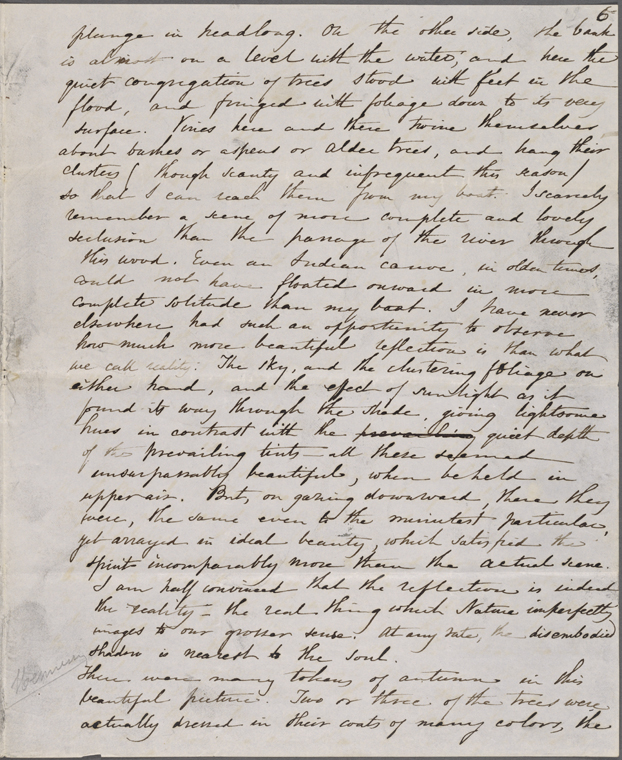 6
plunge in headlong. On the other side, the bank
is almost on a level with the water, and here the
quiet congregation of trees stood with feet in the
flood, and fringed with foliage down to its very
surface. Vines here and there twine themselves
about bushes or aspens or alder trees, and hang their
clusters (though scanty and infrequent this season)
so that I can reach them from my boat. I scarcely
remember a scene of more complete and lovely
seclusion than the passage of the river through
this wood. Even an Indian canoe, in olden times,
could not have floated onward in more
complete solitude than my boat. I have never
elsewhere had such an opportunity to observe
how much more beautiful reflection is than what
we call reality. The sky, and the clustering foliage on
either hand, and the effect of sunlight as it
found its way through the shade, giving lightsome
hues in contrast with the prevailing quiet depth
of the prevailing tints—all these seemed
unsurpassably beautiful, when beheld in
upper air. But, on gazing downward, there they
were, the same even to the minutest particular,
yet arrayed in ideal beauty, which satisfied the
spirit incomparably more than the actual scene.
I am half convinced that the reflection is indeed
the reality—the real thing which Nature imperfectly
images to our grosser sense. At any rate, the disembodied
shadow is nearest to the soul.
There were many tokens of autumn in this
beautiful picture. Two or three of the trees were
actually dressed in their coats of many colors, the